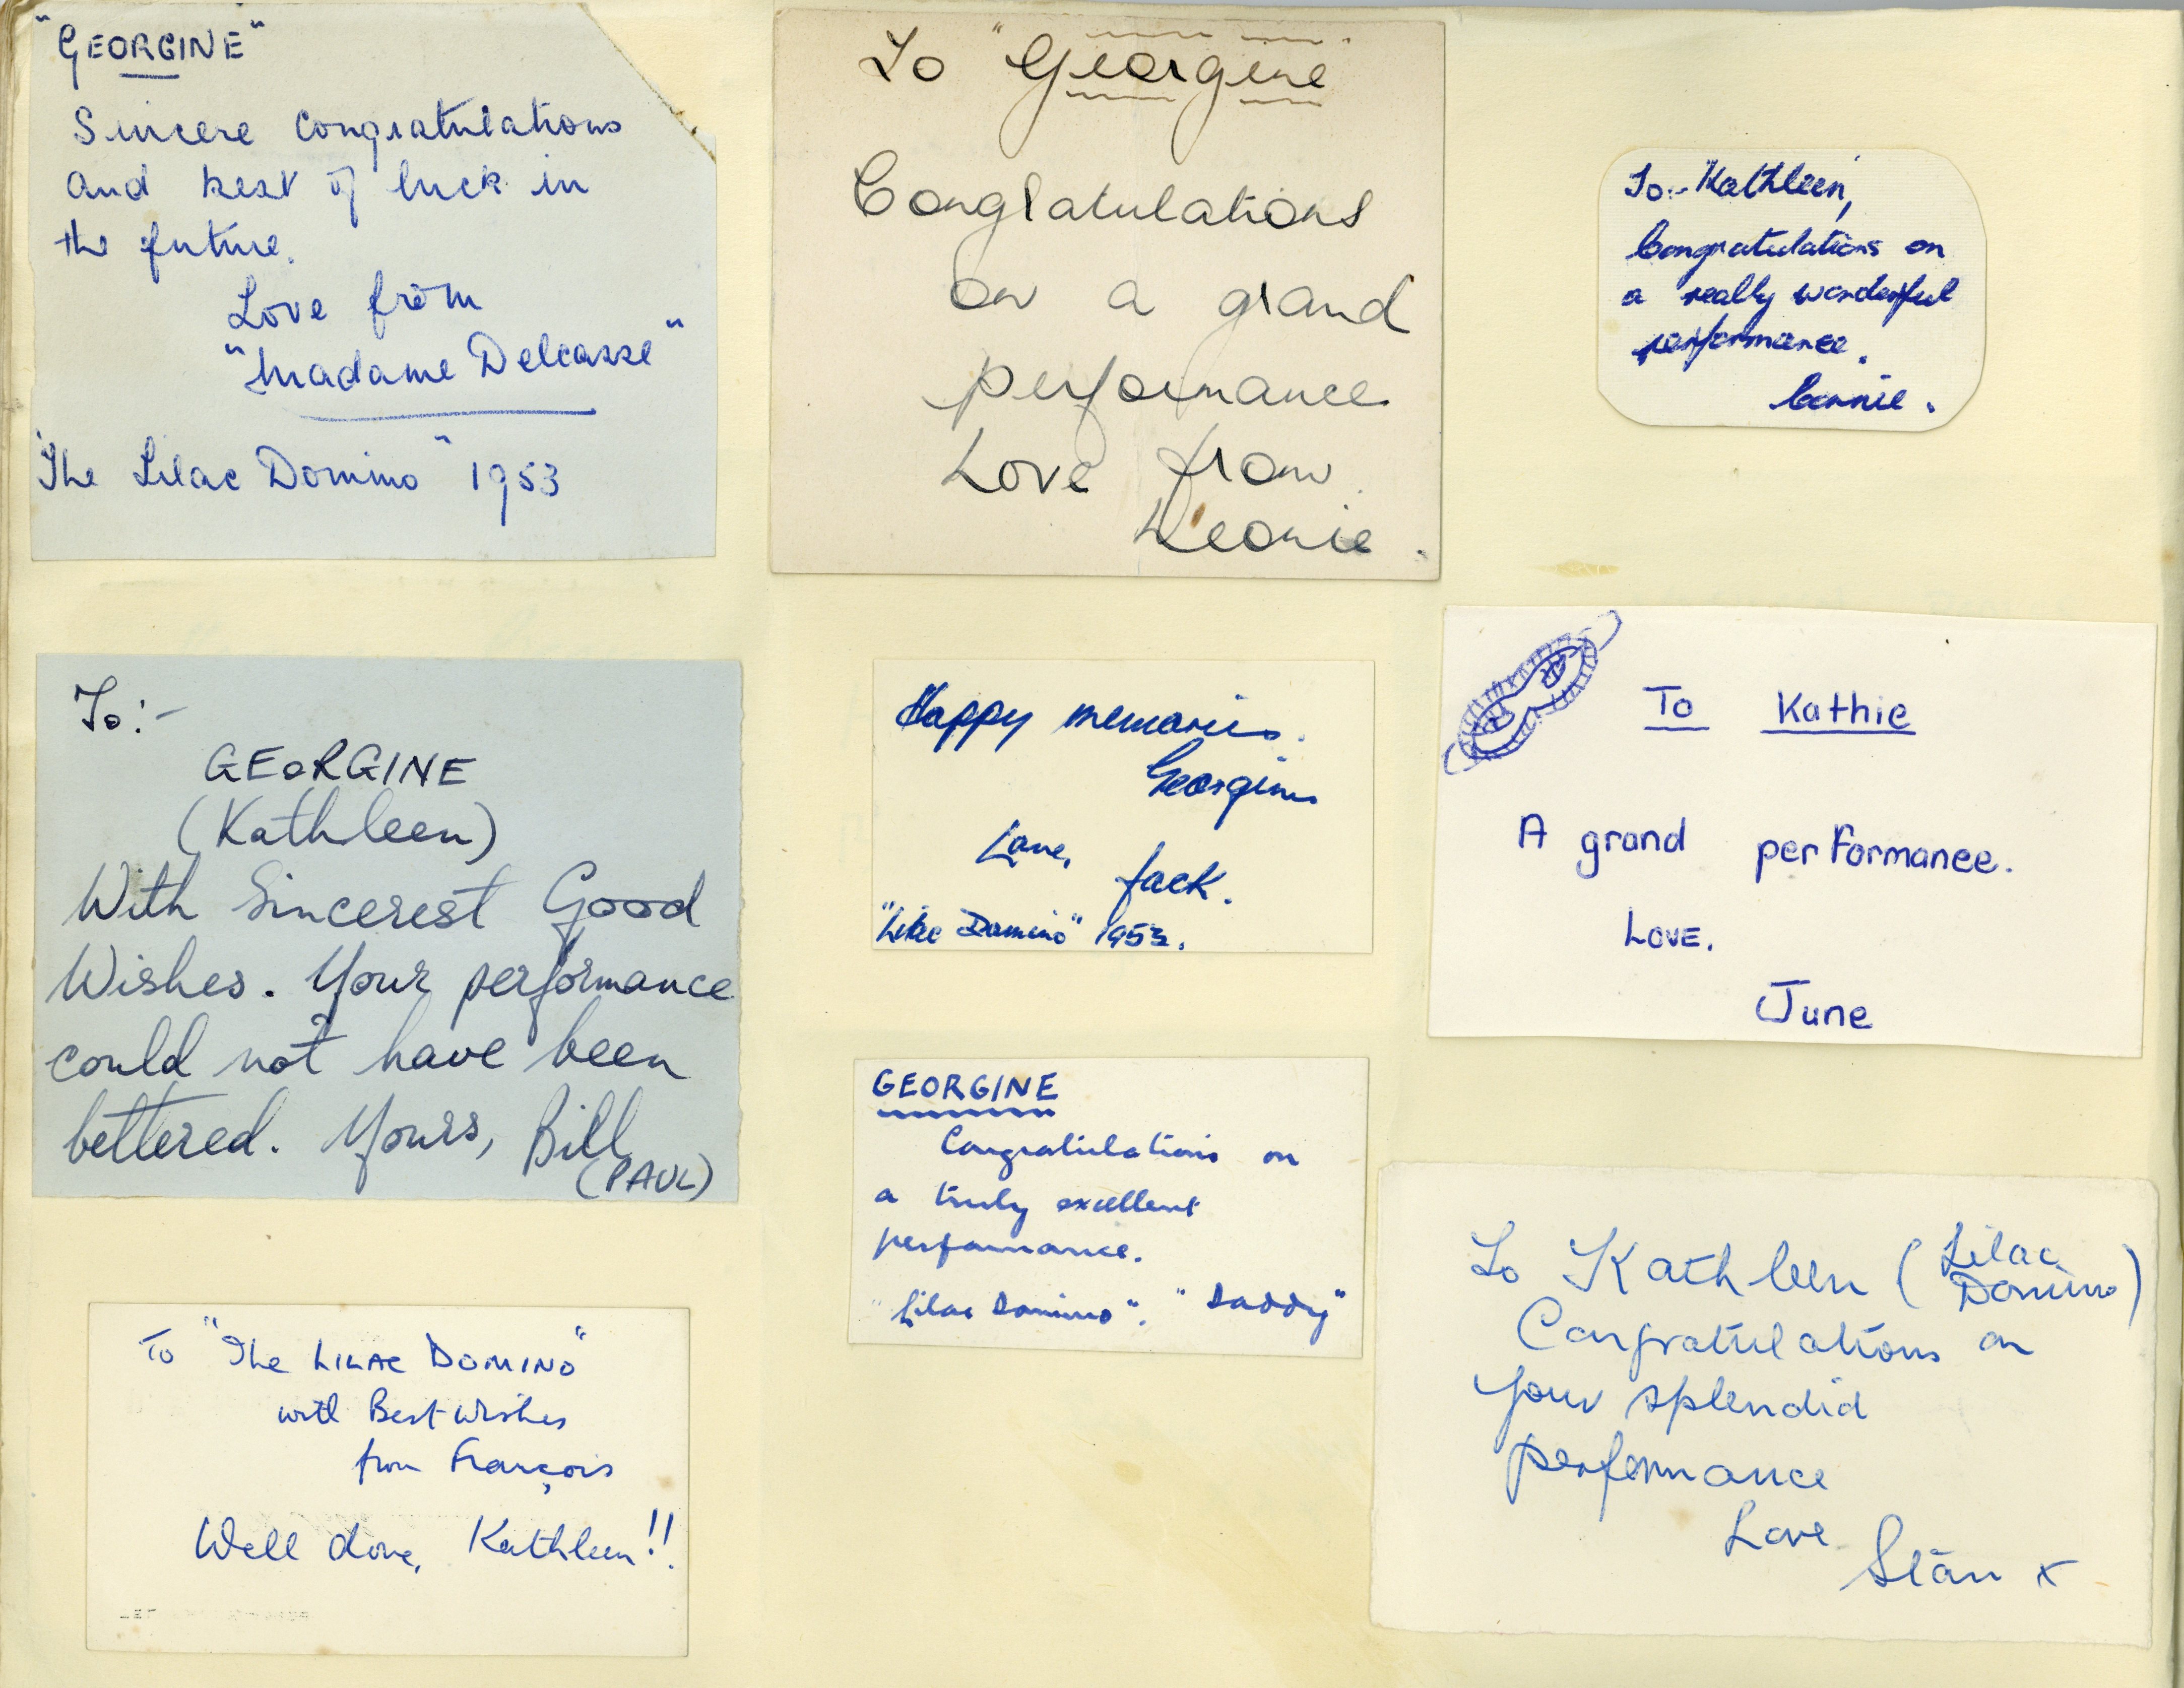 "GEORGINE"
Sincere Congratulations
and best of luck in
the future.
Love from
"Madame Delcasse"
"The Lilac Domino" 1953
To "Georgine"
Congratulations
on a grand
performance
Love from
Leonie.
To:- Kathleen,
Congratulations on
a really wonderful
performance.
Connie.
To:-
GEORGINE
(Kathleen)
With Sincerest Good
Wishes. Your performance
could not have been
bettered. Yours, Bill
(PAUL)
Happy memories.
Georgine
Love,
Jack.
"Lilac Domino" 1953.
To Kathie
A grand performance.
Love.
June
GEORGINE
Congratulations on
a truly excellent
performance.
"Lilac Domino". "Daddy"
To "The LILAC DOMINO"
with Best Wishes
from François
Well done, Kathleen!!
To Kathleen (Lilac
Domino)
Congratulations on
your splendid
performance
Love
Stan x